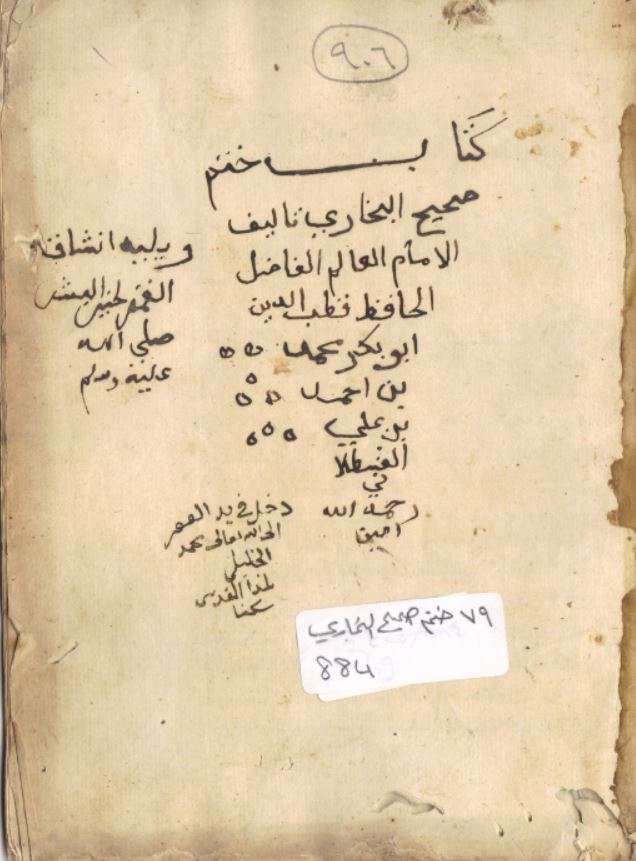 ٩٠٦
كتاب ختم
صحيح البخاري تاليف
الامام العالم الفاضل
الحافظ قطب الدين
ابو بكر محمد
بن احمد
بن علي
القسطلا
ني
رحمه الله
امين
ويليه انشقاق
القمر البشر
صلى الله
عليه وسلم
دخل في يد الفقير
الى الله تعالى محمد
الخليلي
القدسي
سكنا
٧٩ ختم صحيح البخاري
884